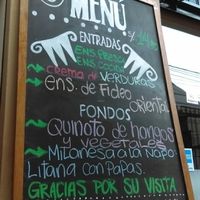 MENÚ
ENTRADAS
ENS. FRESCA
ENS. COCIDA
crema de VERDURAS
ens. de Fideo
ORIENTAL
FONDOS
QUINOTO de hongos
y vegetales
MILANESA a la NAPO
LITANA CON PAPAS.
GRACIAS POR SU VISITA